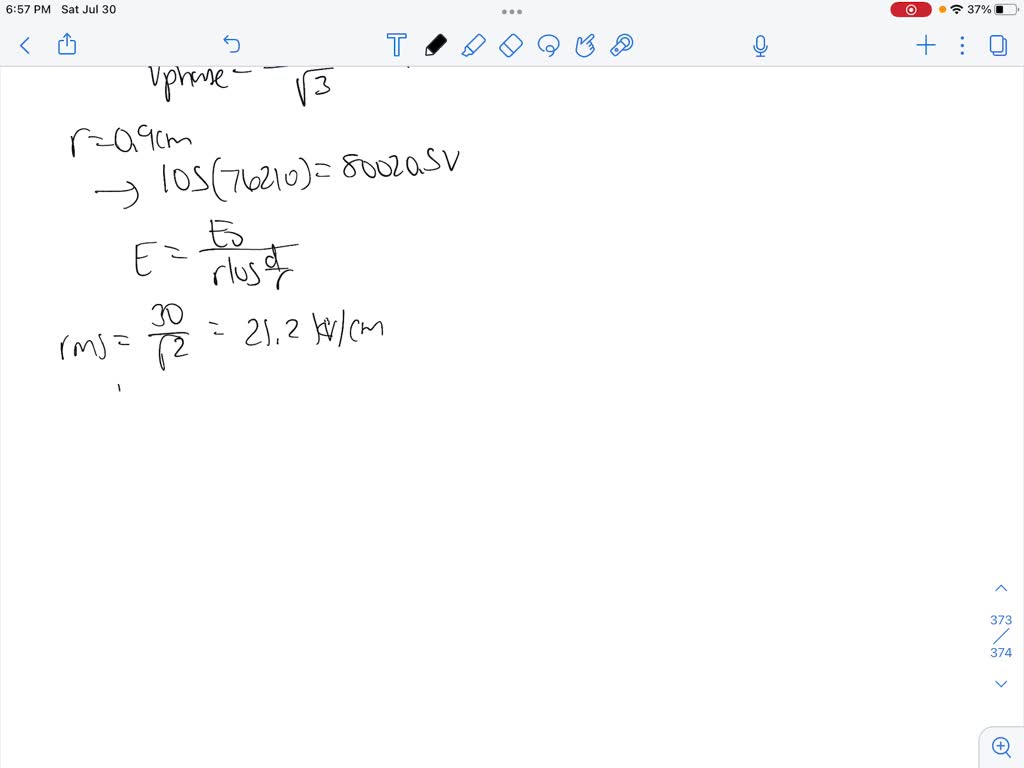 6:57 PM Sat Jul 30
37%
Vphase =
√3
r=0.9cm
→ 1.05(76210)=80020.5V
E = E₀ / r log d/r
rms = 30/√2 = 21.2 kV/cm
373
374